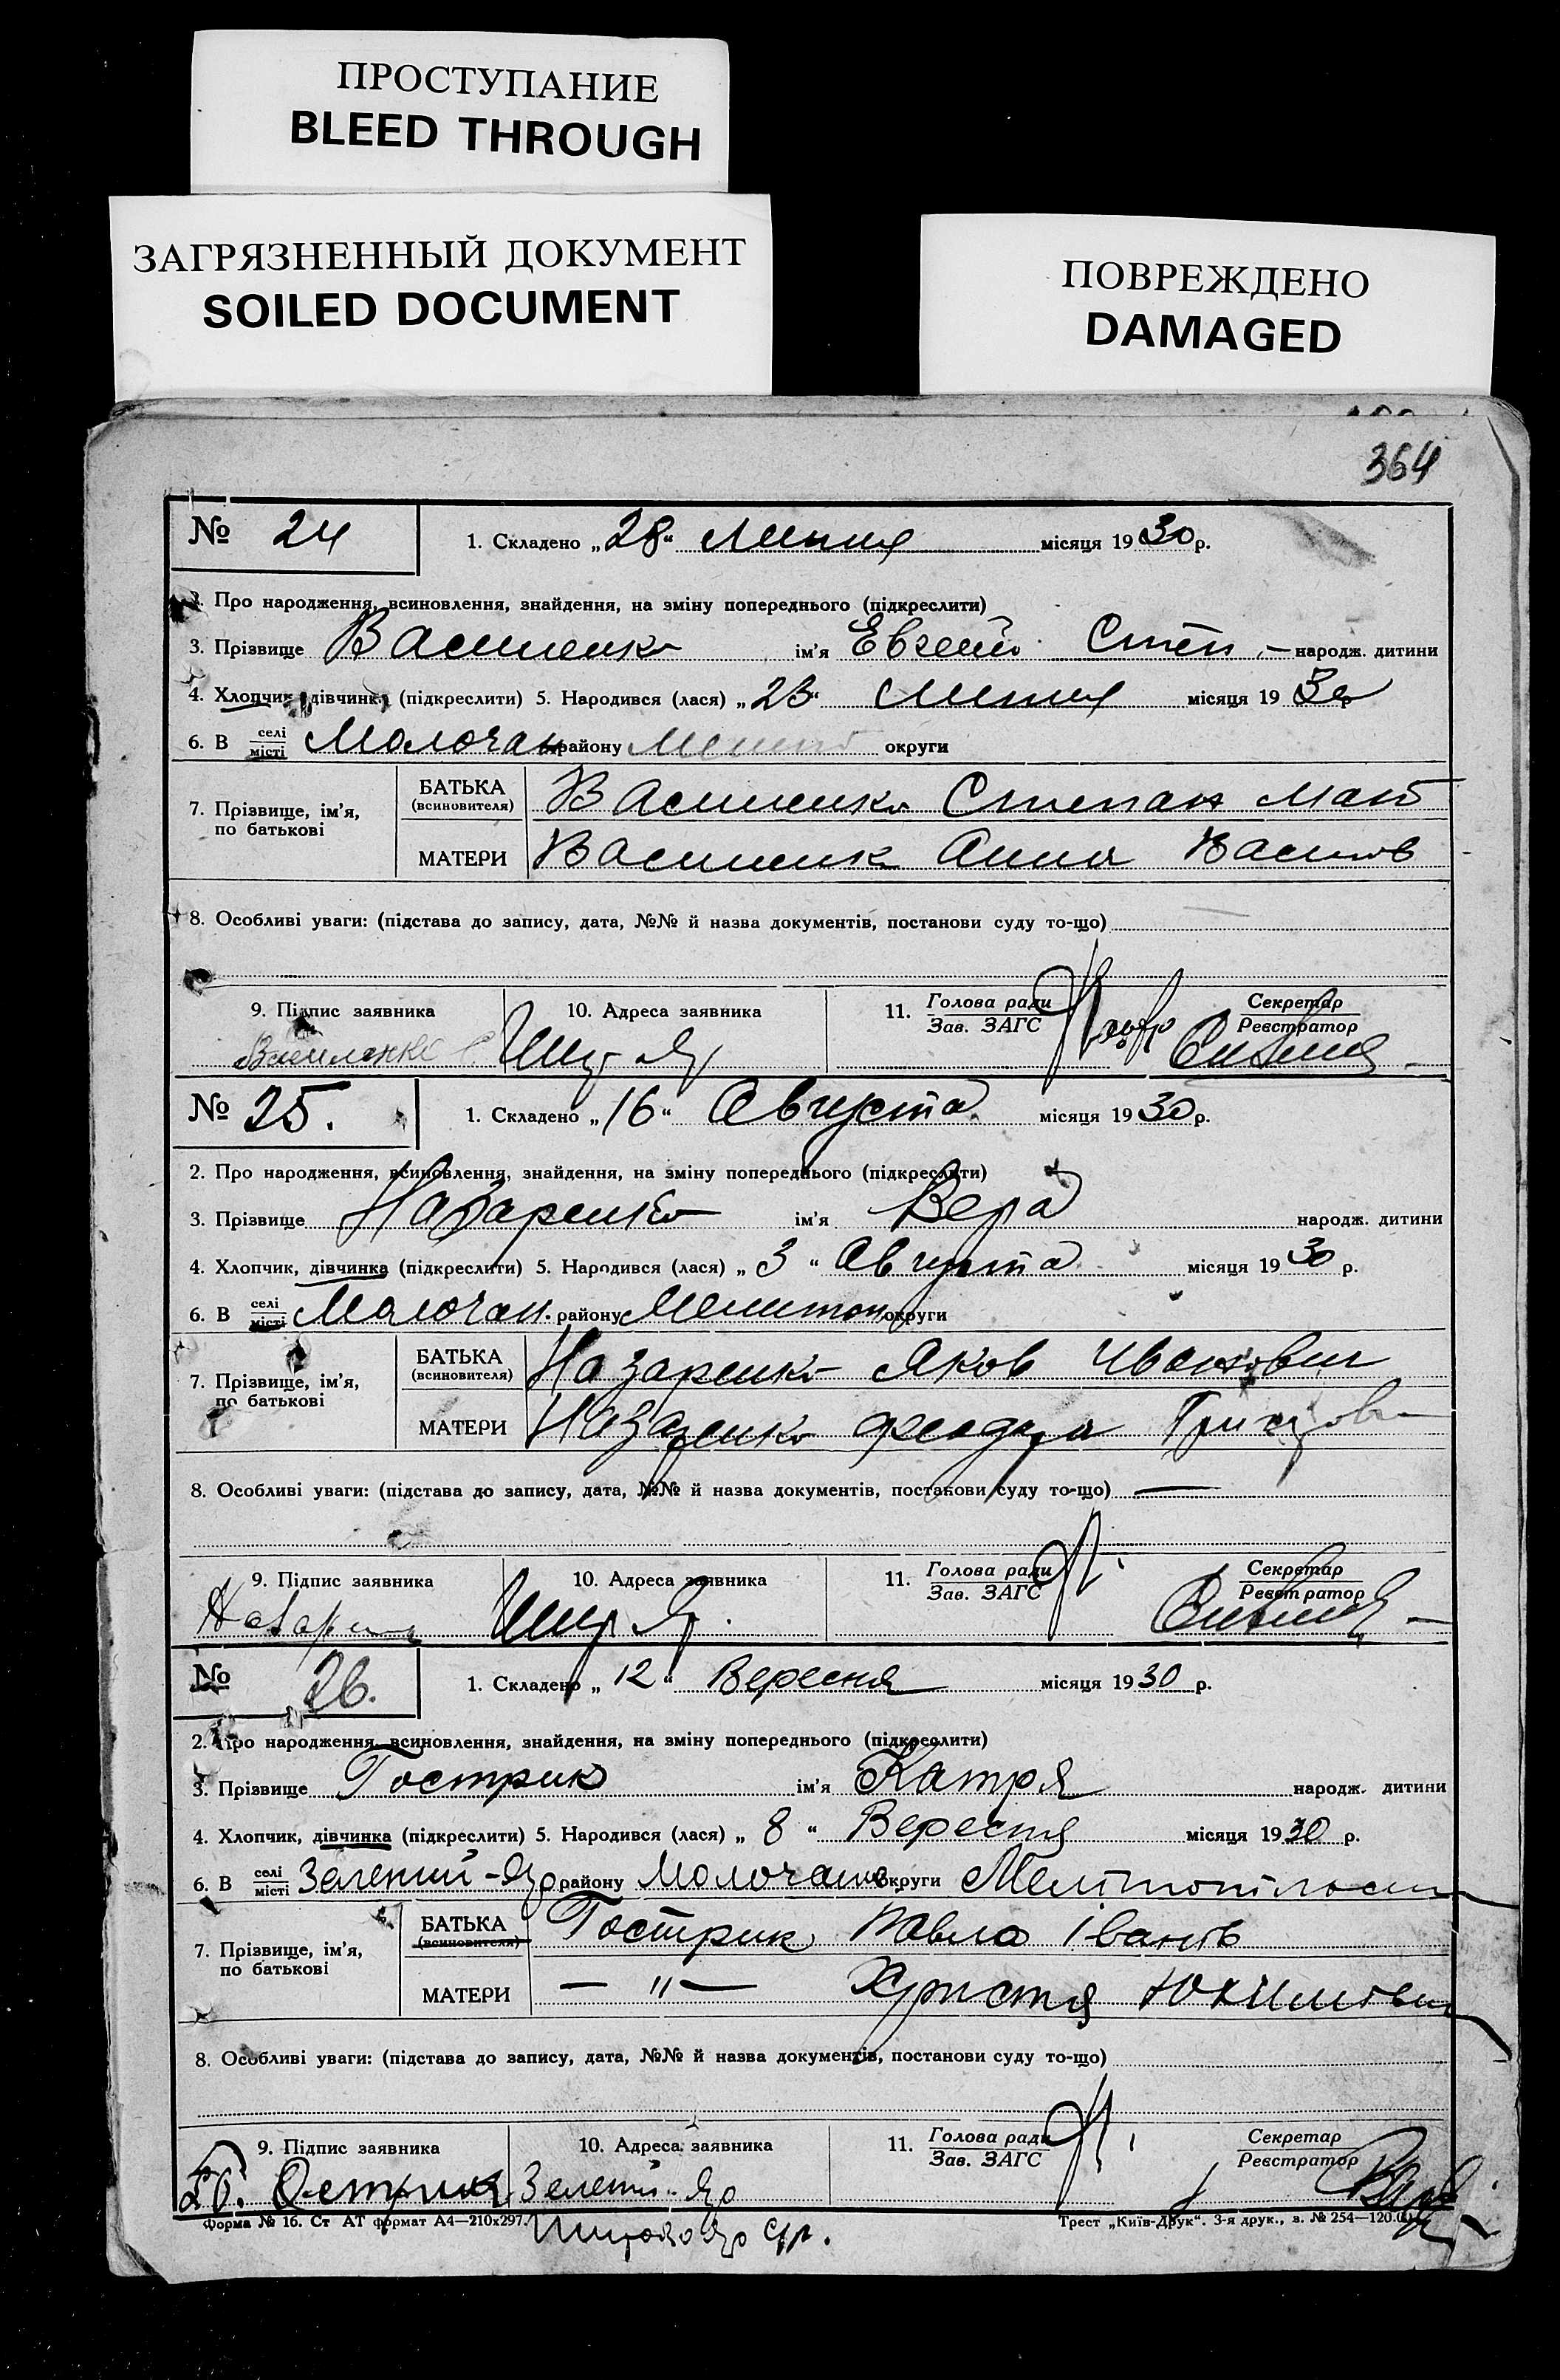 ПРОСТУПАНИЕ
BLEED THROUGH
ЗАГРЯЗНЕННЫЙ ДОКУМЕНТ
SOILED DOCUMENT
ПОВРЕЖДЕНО
DAMAGED
364
№ 24
1. Складено „28“ Липня місяця 1930 р.
2. Про народження, всиновлення, знайдення, на зміну попереднього (підкреслити)
3. Прізвище Василенко ім'я Евгений Степ народж. дитини
4. Хлопчик, дівчинка (підкреслити) 5. Народився (лася) „23“ Липня місяця 1930 р
6. В селі місті Молочан району Мелит округи
7. Прізвище, ім'я, по батькові
БАТЬКА (всиновителя) Василенко Степан Мат
МАТЕРИ Василенк Анна Василов
8. Особливі уваги: (підстава до запису, дата, №№ й назва документів, постанови суду то-що)
9. Підпис заявника 10. Адреса заявника 11. Голова ради Зав. ЗАГС Секретар Реєстратор
Василенко С. Шир Яр
№ 25.
1. Складено „16“ Августа місяця 1930 р.
2. Про народження, всиновлення, знайдення, на зміну попереднього (підкреслити)
3. Прізвище Назаренко ім'я Вера народж. дитини
4. Хлопчик, дівчинка (підкреслити) 5. Народився (лася) „3“ Августа місяця 1930 р.
6. В селі місті Молочан. району Мелитоп округи
7. Прізвище, ім'я, по батькові
БАТЬКА (всиновителя) Назаренко Яков Иванович
МАТЕРИ Назаренко Феодора
8. Особливі уваги: (підстава до запису, дата, №№ й назва документів, постанови суду то-що) —
9. Підпис заявника 10. Адреса заявника 11. Голова ради Зав. ЗАГС Секретар Реєстратор
Шир Яр.
№ 26.
1. Складено „12“ Вересня місяця 1930 р.
2. Про народження, всиновлення, знайдення, на зміну попереднього (підкреслити)
3. Прізвище Гострик ім'я Катря народж. дитини
4. Хлопчик, дівчинка (підкреслити) 5. Народився (лася) „8“ Вересня місяця 1930 р.
6. В селі місті Зелений-Яр району Молочанс. округи Мелітопільськ
7. Прізвище, ім'я, по батькові
БАТЬКА (всиновителя) Гострик Павло Іванів
МАТЕРИ — " — Христя Юхимівн
8. Особливі уваги: (підстава до запису, дата, №№ й назва документів, постанови суду то-що)
9. Підпис заявника 10. Адреса заявника 11. Голова ради Зав. ЗАГС Секретар Реєстратор
Острик Зелений-Яр
Форма № 16. Ст АТ формат А4—210x297. Широко Яр с/р. Трест „Київ-Друк“. 3-я друк., з. № 254—120.0